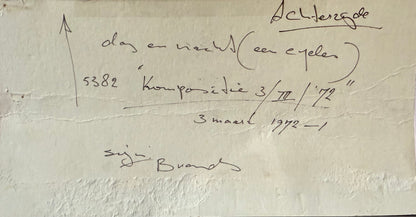 Achterzyde
dag en nacht (een cyclus)
5382 "Kompositie 3/III/'72"
3 maart 1972 — 1
sign Brands